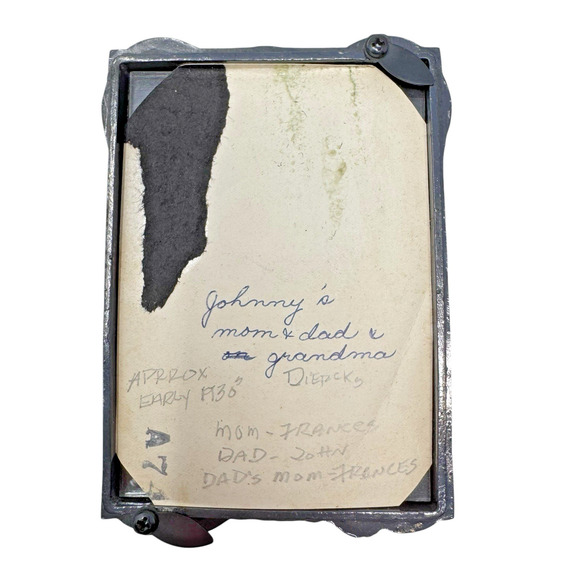 Johnny's
mom & dad &
grandma
APRROX
EARLY 1930s
DIERCKS
MOM - FRANCES
DAD - JOHN
DAD'S MOM - FRENCES
A7